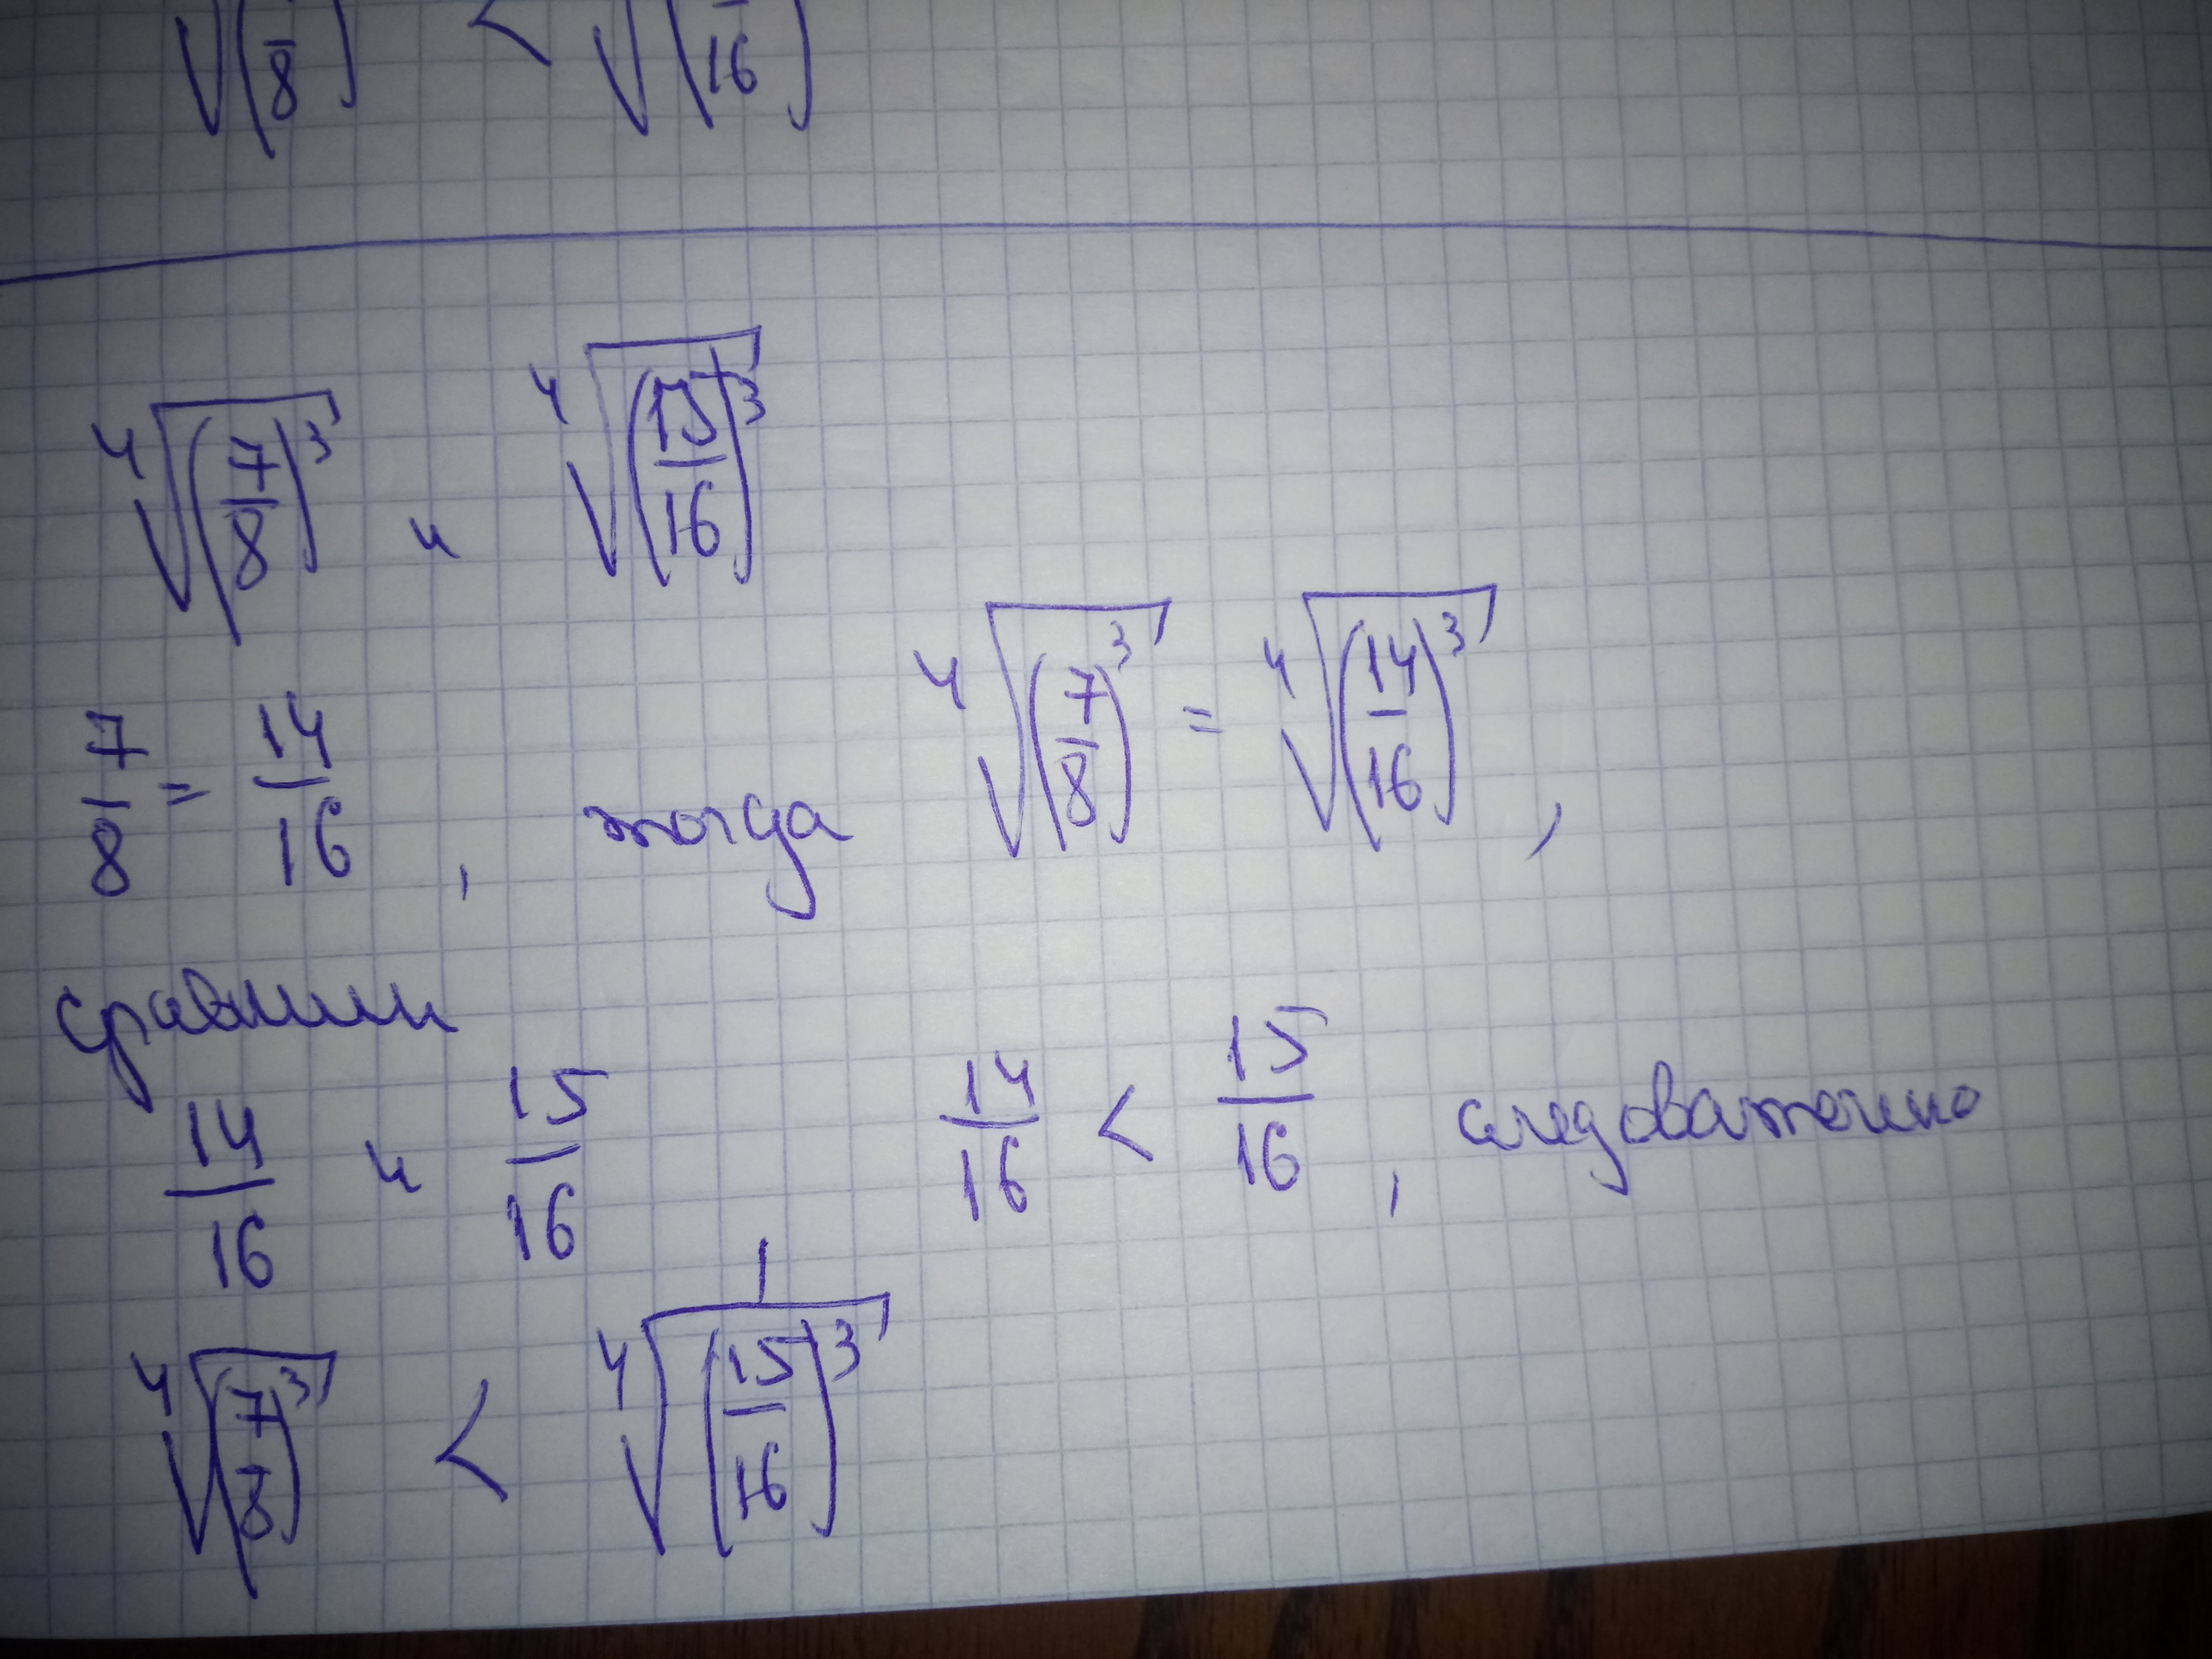 √(/8) < √(/16)
⁴√(7/8)³ и ⁴√(15/16)³
7/8 = 14/16 , тогда ⁴√(7/8)³ = ⁴√(14/16)³ ,
сравним
14/16 и 15/16 14/16 < 15/16 , следовательно
⁴√(7/8)³ < ⁴√(15/16)³